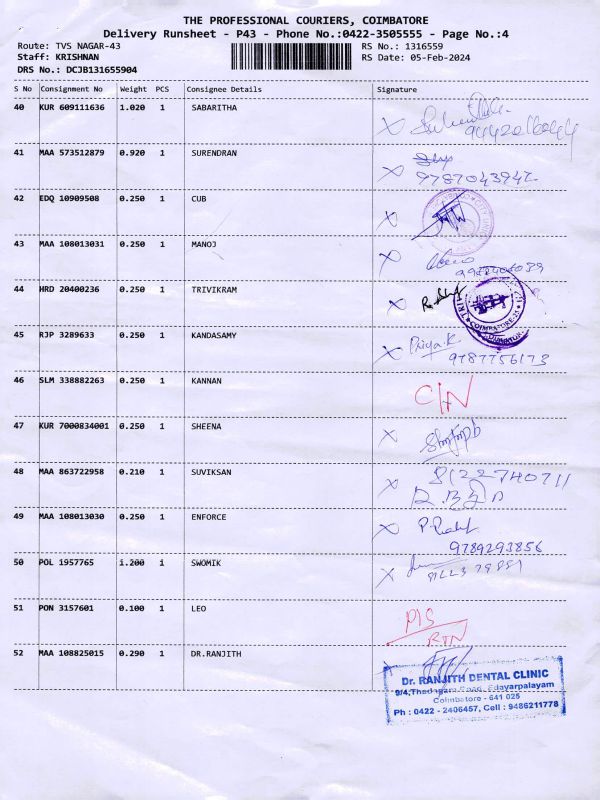 THE PROFESSIONAL COURIERS, COIMBATORE
Delivery Runsheet - P43 - Phone No.:0422-3505555 - Page No.:4
Route: TVS NAGAR-43 RS No.: 1316559
Staff: KRISHNAN RS Date: 05-Feb-2024
DRS No.: DCJB131655904
S No Consignment No Weight PCS Consignee Details Signature
40 KUR 609111636 1.020 1 SABARITHA
41 MAA 573512879 0.920 1 SURENDRAN
9787043942
42 EDQ 10909508 0.250 1 CUB
43 MAA 108013031 0.250 1 MANOJ
44 HRD 20400236 0.250 1 TRIVIKRAM
COIMBATORE
45 RJP 3289633 0.250 1 KANDASAMY Priya.K
9787756173
46 SLM 338882263 0.250 1 KANNAN C/N
47 KUR 7000834001 0.250 1 SHEENA
48 MAA 863722958 0.210 1 SUVIKSAN 8122740711
49 MAA 108013030 0.250 1 ENFORCE
9789293856
50 POL 1957765 1.200 1 SWOMIK
51 PON 3157601 0.100 1 LEO P/S
RTN
52 MAA 108825015 0.290 1 DR.RANJITH
Dr. RANJITH DENTAL CLINIC
9/4, Thadagam Road, Edayarpalayam
Coimbatore - 641 025
Ph : 0422 - 2406457, Cell : 9486211778